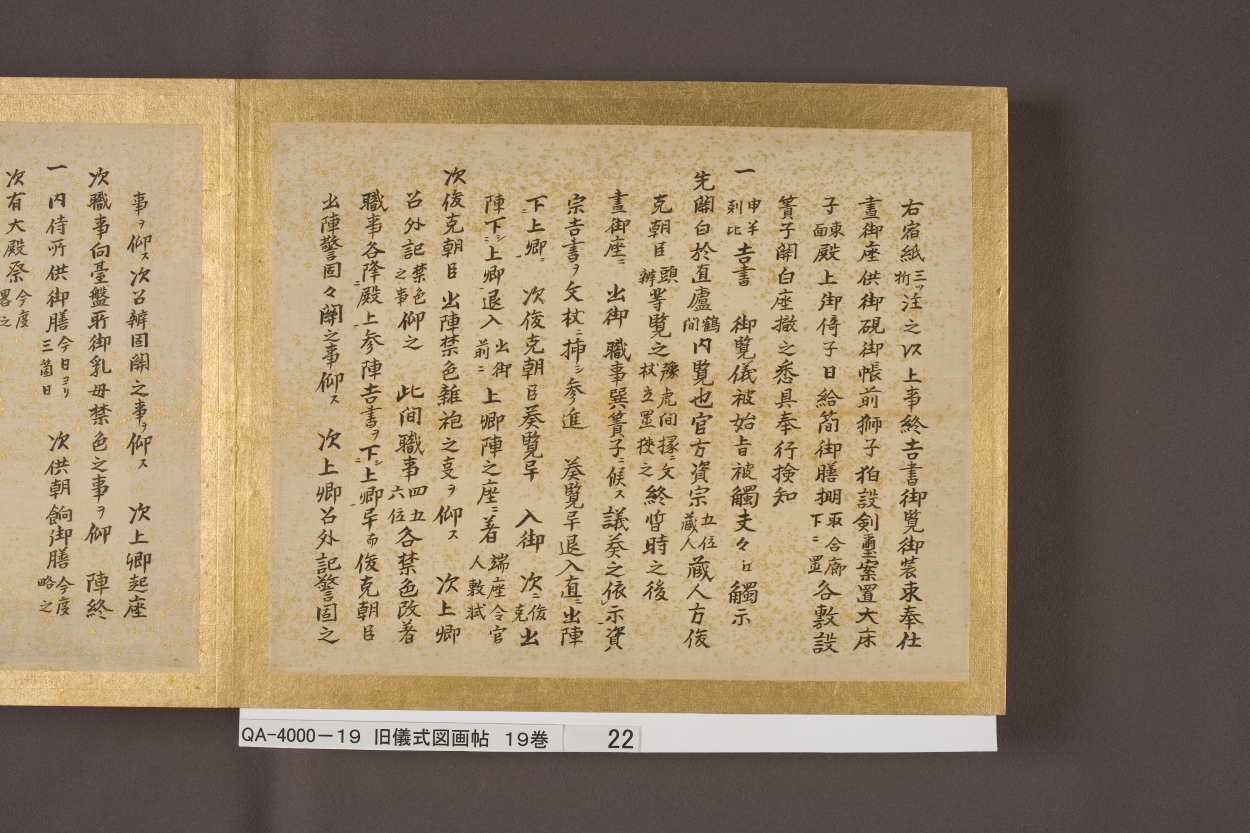 右宿紙三ッ折注之以上事終吉書御覧御装束奉仕
晝御座供御硯御帳前獅子狛設剣璽案置大床
子東面殿上御倚子日給简御膳棚取合廊下ニ置各敷設
簀子関白座撤之悉具奉行検知
一申半剋比吉書　御覧儀被始旨被觸夫々江觸示
先関白於直廬鶴間内覧也官方資宗五位蔵人蔵人方俊
克朝臣頭辨等覧之豫虎間椽文杖立置挟之終暫時之後
晝御座ニ　出御　職事巽簀子ニ候ス議奏之依示資
宗吉書ヲ文杖ニ挿シ参進　奏覧早退入直ニ出陣
下上卿ニ　次俊克朝臣奏覧早　入御　次ニ俊克出
陣下シ上卿ニ退入出御前ニ上卿陣之座ニ着端座令官人敷軾
次俊克朝臣出陣禁色雑袍之支ヲ仰ス　次上卿
召外記禁色之事仰之　此间職事四五六位各禁色改着
職事各降殿上参陣吉書ヲ下シ上卿ニ早而俊克朝臣
出陣警固々関之事仰ス　次上卿召外記警固之
事ヲ仰ス次召辨固関之事ヲ仰ス　次上卿起座
次職事向臺盤所御乳母禁色之事ヲ仰　陣終
一内侍所供御膳今日ヨリ三箇日　次供朝餉御膳今度略之
次有大殿祭今度畧之
QA-4000-19　旧儀式図画帖　19巻　22